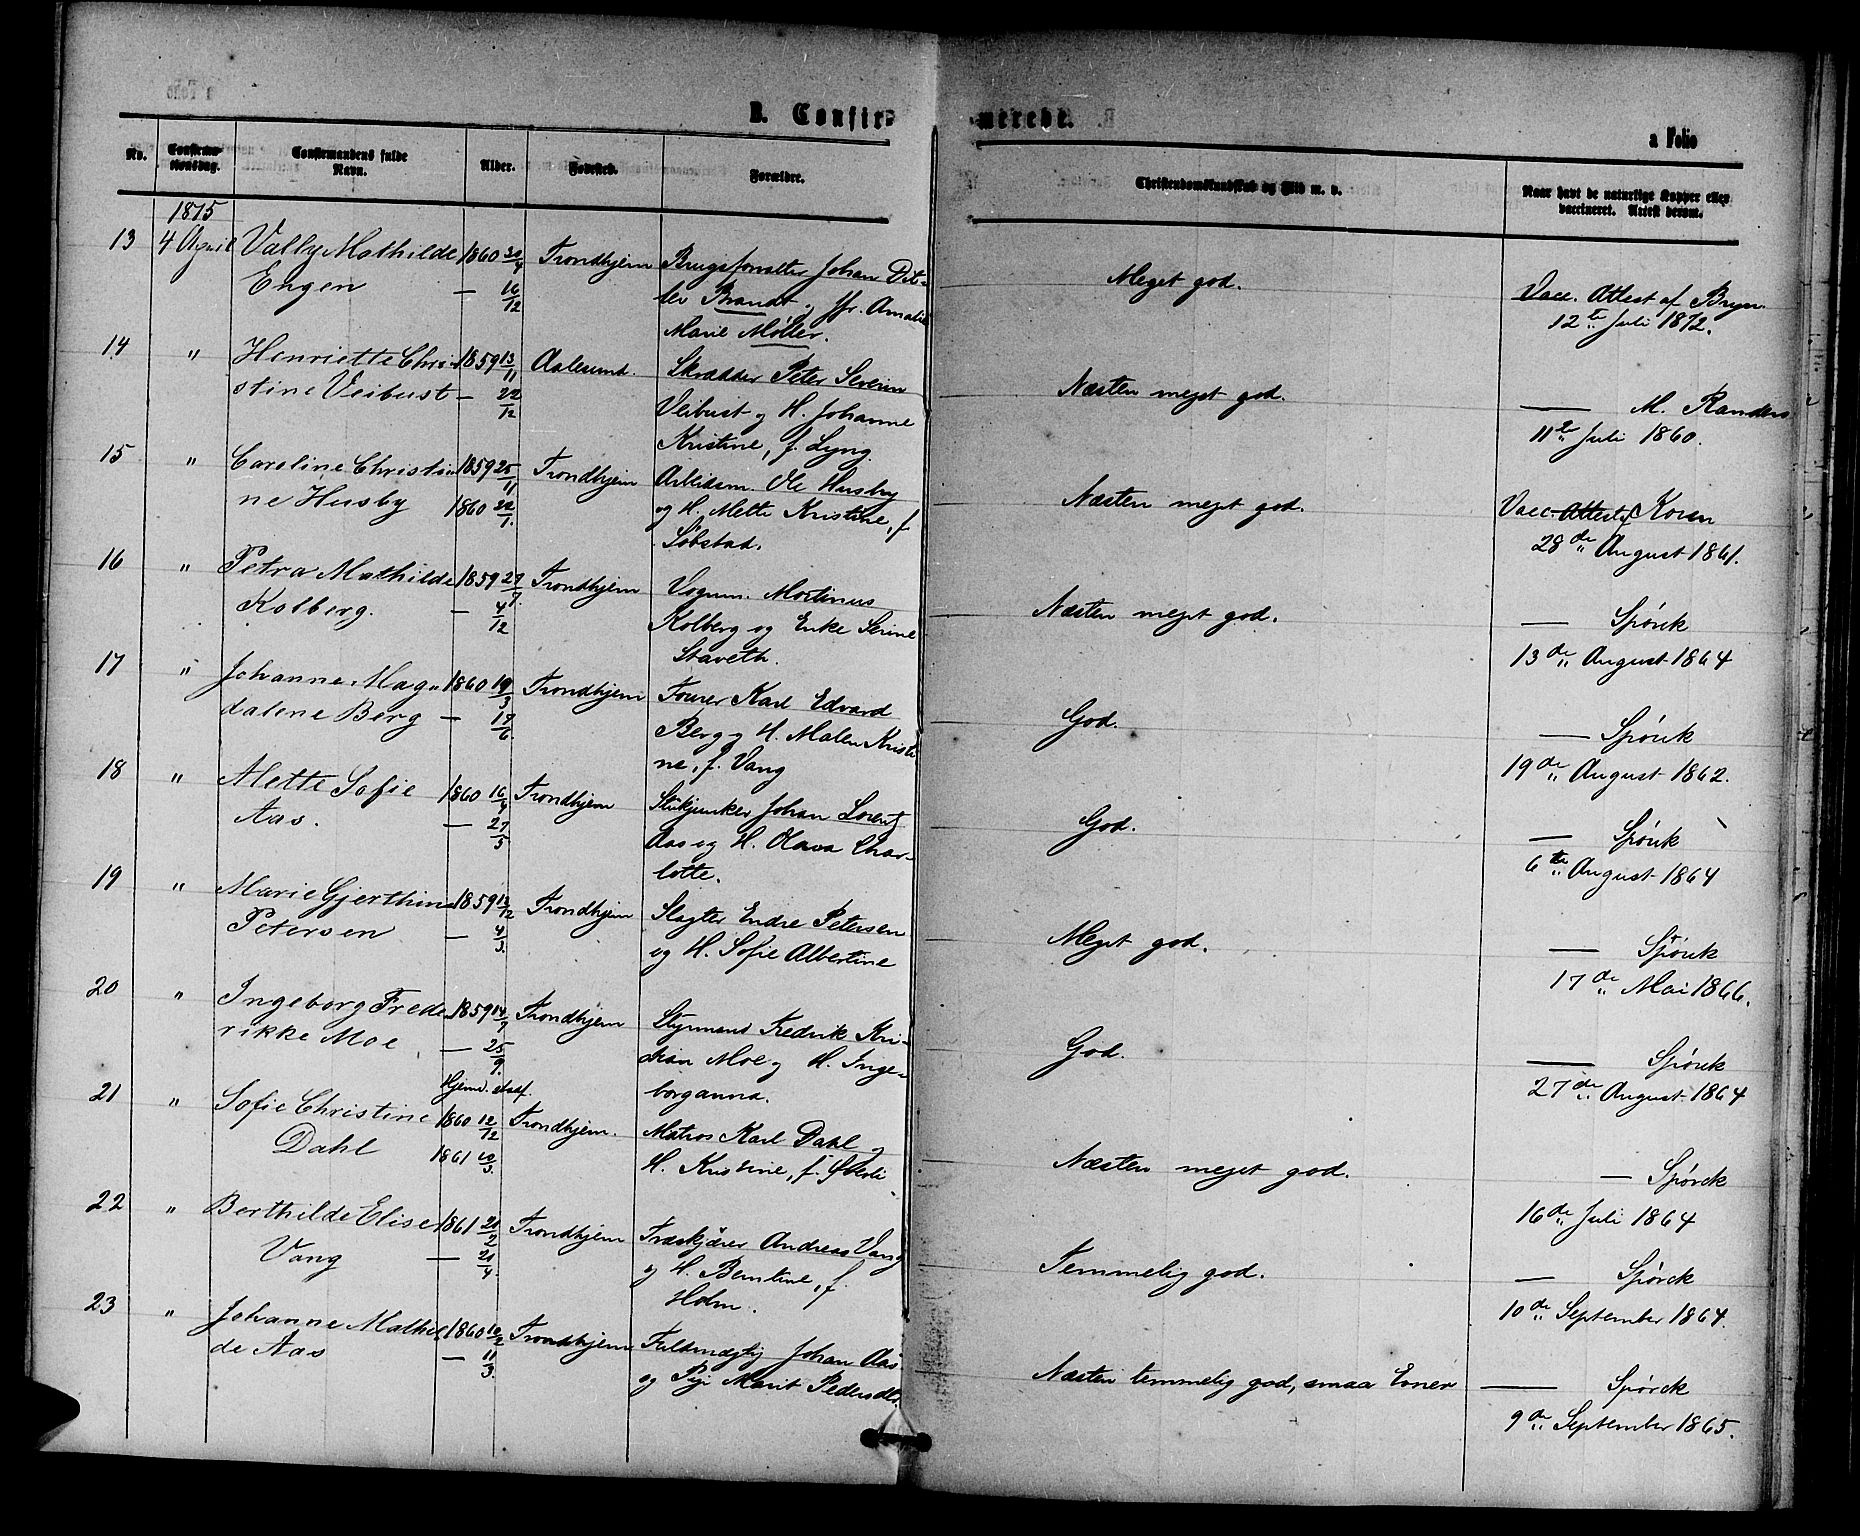 B. Confirmerede.
a Folio
No.
Confirmationsdag.
Confirmandens fulde Navn.
Alder.
Fødested.
Forældre.
Christendomskundskab og Flid m. v.
Naar havt de naturlige Kopper eller vaccineret. Attest derom.
1875
13 4 April Vally Mathilde 1860 30/4 Trondhjem Brugsforvalter Johan Dit-
Engen — 16/12 lev Brandt og Jfr. Amalie
Marie Møller.
Meget god.
Vacc. Attest af Bryn
12te Juli 1872.
14 " Henriette Chri- 1859 13/11 Aalesund. Skrædder Peter Severin
stine Veibust — 22/12 Veibust og H. Johanne
Kristine, f. Lyng.
Næsten meget god.
— M. Randers
11te Juli 1860.
15 " Caroline Christi- 1859 25/11 Trondhjem Arbeidsm. Ole Husby
ne Husby 1860 22/1. og H. Mette Kristine, f.
Søbstad.
Næsten meget god.
Vacc. Attest af Koren
28de August 1861.
16 " Petra Mathilde 1859 27/9. Trondhjem Vognm. Martinus
Kolberg. — 4/12 Kolberg og Enke Serine
Staveth.
Næsten meget god.
— Spørck
13de August 1864
17 " Johanne Mag- 1860 19/3 Trondhjem Fourer Karl Edvard
dalene Berg — 17/6. Berg og H. Malen Kristi
ne, f. Vang
God.
— Spørck
19de August 1862.
18 " Mette Sofie 1860 16/4 Trondhjem Stukjunker Johan Lorentz
Aas. — 27/5 Aas og H. Olava Char-
lotte.
God.
— Spørck
6te August 1864
19 " Marie Gjerthine 1859 13/12 Trondhjem Slagter Endre Petersen
Petersen — 4/3. og H. Sofie Albertine
Meget god.
— Spørck
17de Mai 1866.
20 " Ingeborg Frede- 1859 14/7 Trondhjem Styrmand Fredrik Kri-
rikke Moe — 25/9. stian Moe og H. Inge-
Hjemd. borganna.
God.
— Spørck
27de August 1864
21 " Sofie Christine 1860 12/12 Trondhjem. Matros Karl Dahl og
Dahl 1861 10/3. H. Kristine, f.
Næsten meget god.
— Spørck
16de Juli 1864
22 " Berthilde Elise 1861 20/2 Trondhjem Træskjærer Andreas Vang
Vang — 21/4. og H. Berntine, f.
Holm.
Temmelig god.
— Spørck
10de September 1864.
23 " Johanne Mathil 1860 10/2 Trondhjem Fuldmægtig Johan Aas
de Aas — 11/3. og Pige Marit Pedersdtr.
Næsten temmelig god, smaa Evner
— Spørck
9de September 1865.